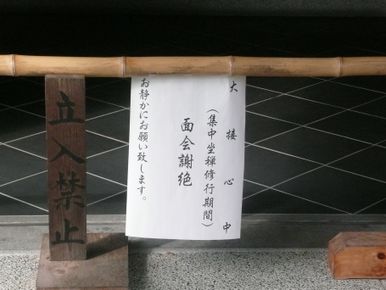 立入禁止
大接心中
(集中坐禅修行期間)
面会謝絶
お静かにお願い致します。